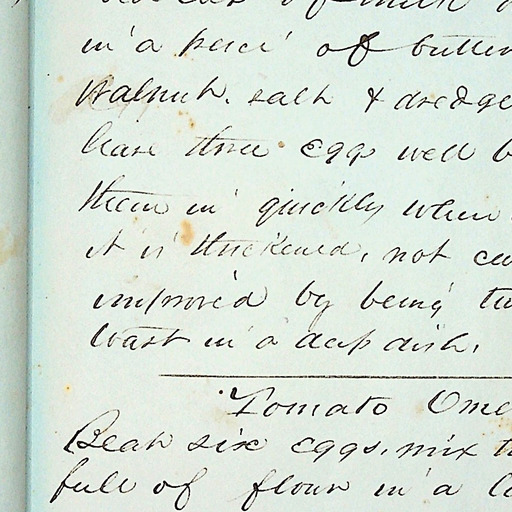 of milk
in a peice of butter
Walnut. salt & dredge
have three eggs well b
them in quickly when
it is thickened, not cu
improved by being tu
toast in a deep dish.
Tomato Ome
Beat six eggs. mix t
full of flour in a